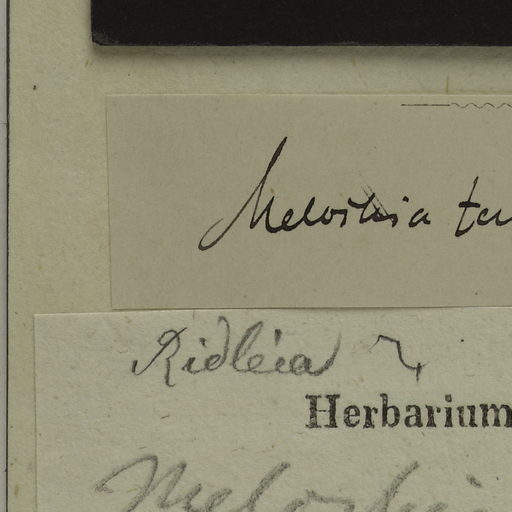 Melochia
Ridleia
Herbarium
Melochia